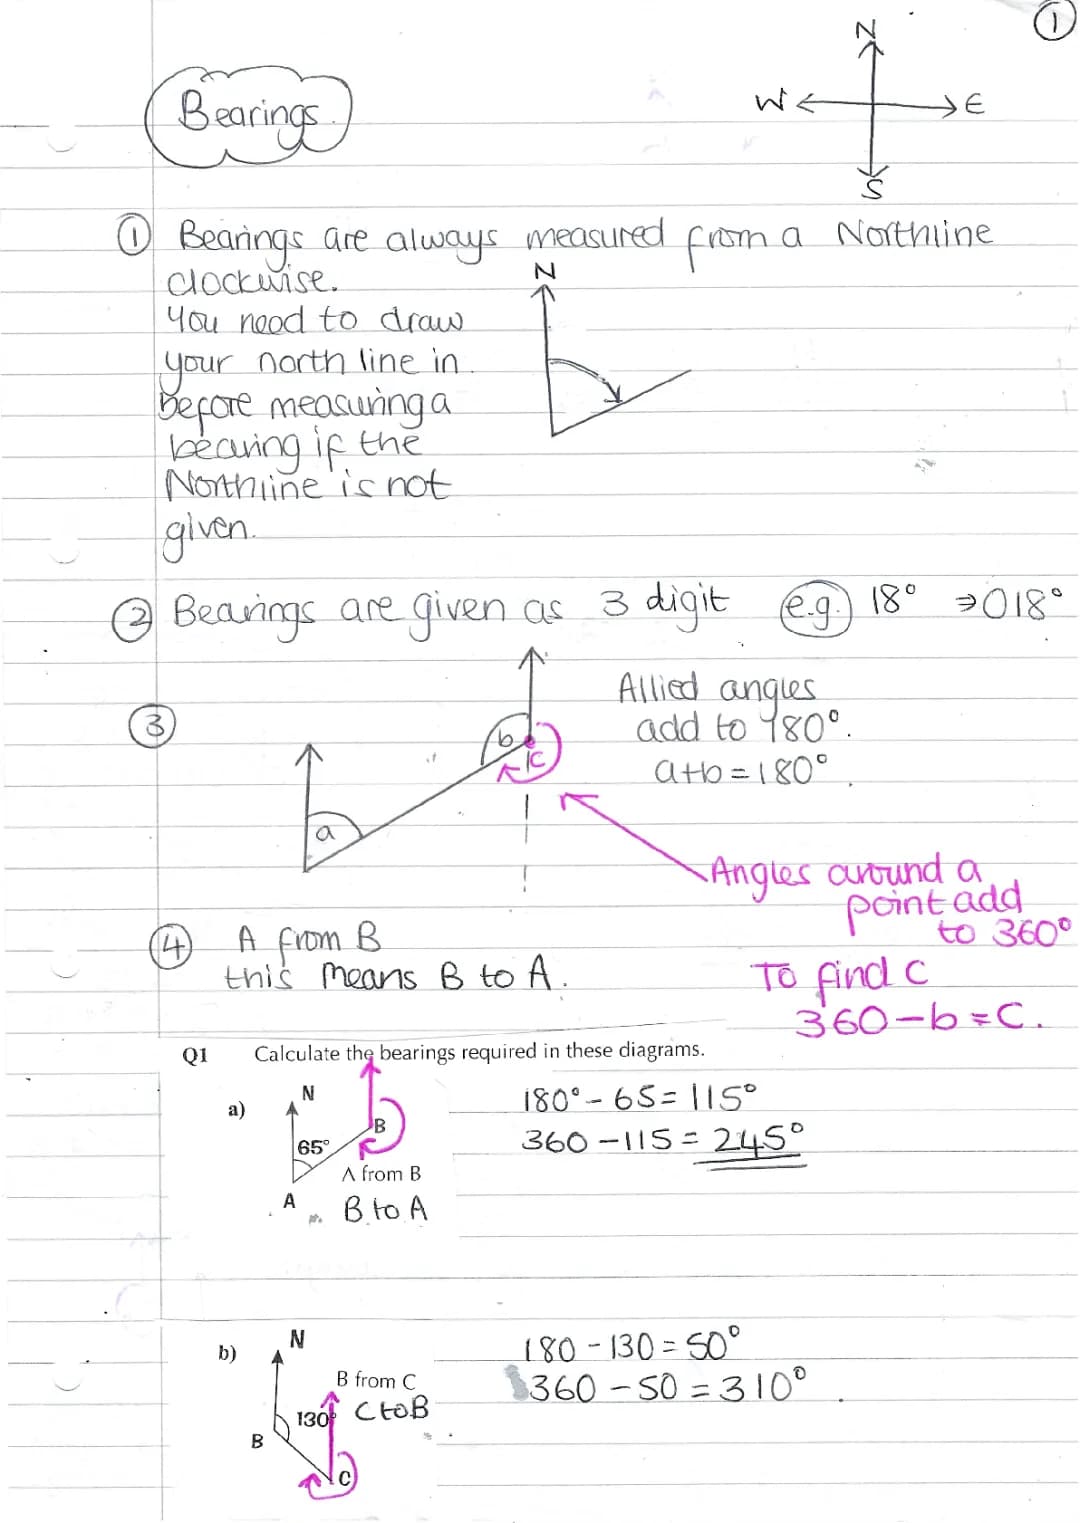 1
N
W E
S
Bearings.
1 Bearings are always measured from a Northline
clockwise.
N
You need to draw
your north line in
before measuring a
bearing if the
Northline is not
given.
2 Bearings are given as 3 digit e.g. 18° ⇒ 018°
3
Allied angles
add to 180°.
a+b=180°
b
c
a
Angles around a
point add
to 360°
4 A from B
this means B to A.
To find c
360-b=c.
Q1 Calculate the bearings required in these diagrams.
a)
N
65°
B
A
A from B
B to A
180°-65=115°
360-115=245°
b)
N
B from C
C to B
130°
B
C
180-130=50°
360-50=310°